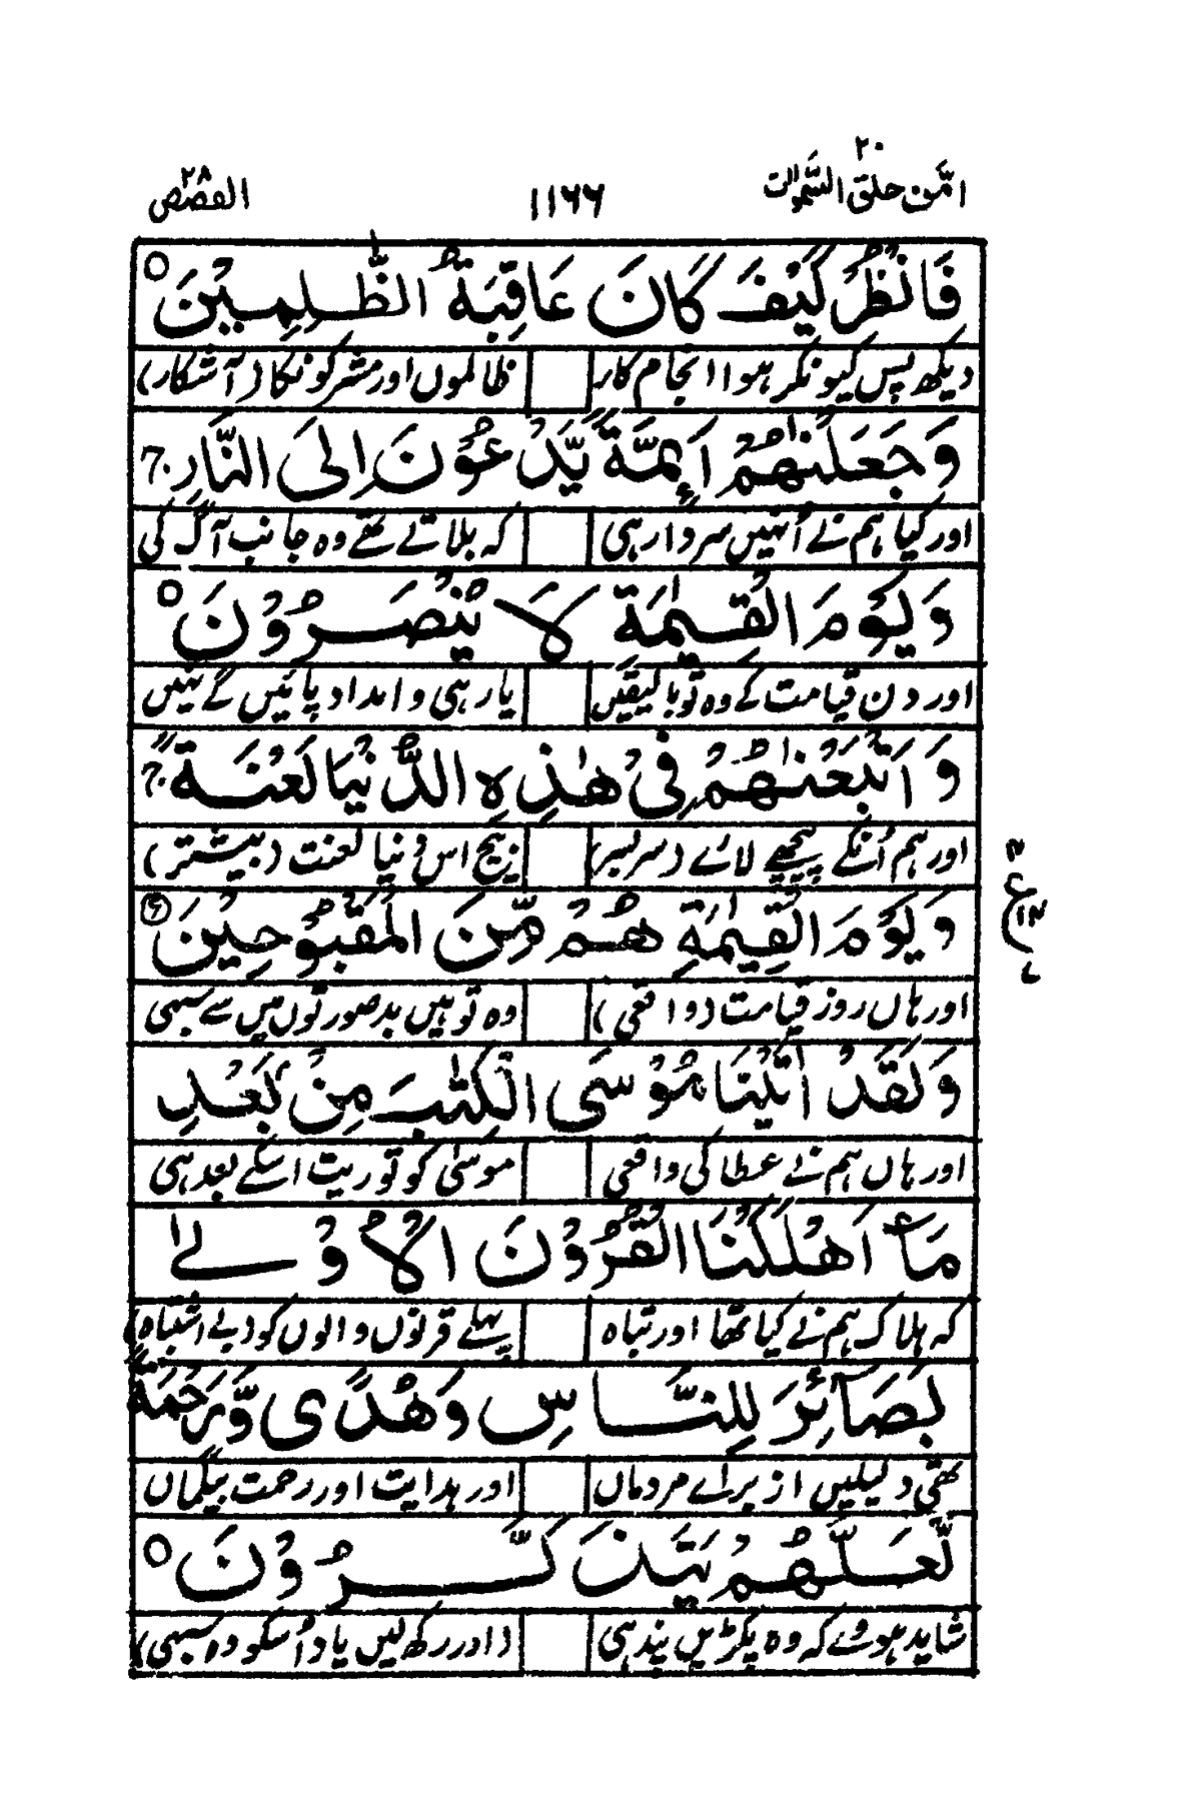 امّن خلق السّمٰوٰت ٢٠
١١٦٦
القصص ٢٨
فَانْظُرْ كَيْفَ كَانَ عَاقِبَةُ الظّٰلِمِيْنَ ○
دیکھ پس کیونکر ہوا انجام کار
ظالموں اور مشرکوں کا (آشکار)
وَجَعَلْنٰهُمْ اَىِٕمَّةً يَّدْعُوْنَ اِلَى النَّارِ ۚ
اور کیا ہم نے اُنہیں سردار ہی
کہ بلاتے تھے وہ جانب آگ کی
وَيَوْمَ الْقِيٰمَةِ لَا يُنْصَرُوْنَ ○
اور دن قیامت کے وہ تو بالیقیں
یار ہی و امداد پائیں گے نہیں
وَاَتْبَعْنٰهُمْ فِيْ هٰذِهِ الدُّنْيَا لَعْنَةً ۚ
اور ہم اُنکے پیچھے لائے (سربسر)
بیچ اس دُنیا لعنت (بیشتر)
وَيَوْمَ الْقِيٰمَةِ هُمْ مِّنَ الْمَقْبُوْحِيْنَ
اور ہاں روز قیامت (واقعی)
وہ تو ہیں بد صورتوں میں سے سبھی
وَلَقَدْ اٰتَيْنَا مُوْسَى الْكِتٰبَ مِنْۢ بَعْدِ
اور ہاں ہم نے عطا کی واقعی
موسٰی کو توریت اسکے بعد ہی
مَآ اَهْلَكْنَا الْقُرُوْنَ الْاُوْلٰى
کہ ہلاک ہم نے کیا تھا اور تباہ
پہلے قرنوں والوں کو (بے اشتباہ)
بَصَآئِرَ لِلنَّاسِ وَهُدًى وَّرَحْمَةً
تھی دلیلیں از برائے مردماں
اور ہدایت اور رحمت بیگماں
لَّعَلَّهُمْ يَتَذَكَّرُوْنَ ○
شاید ہووے کہ وہ پکڑیں پند ہی
(اور رکھ لیں یاد اُسکو وہ سبھی)